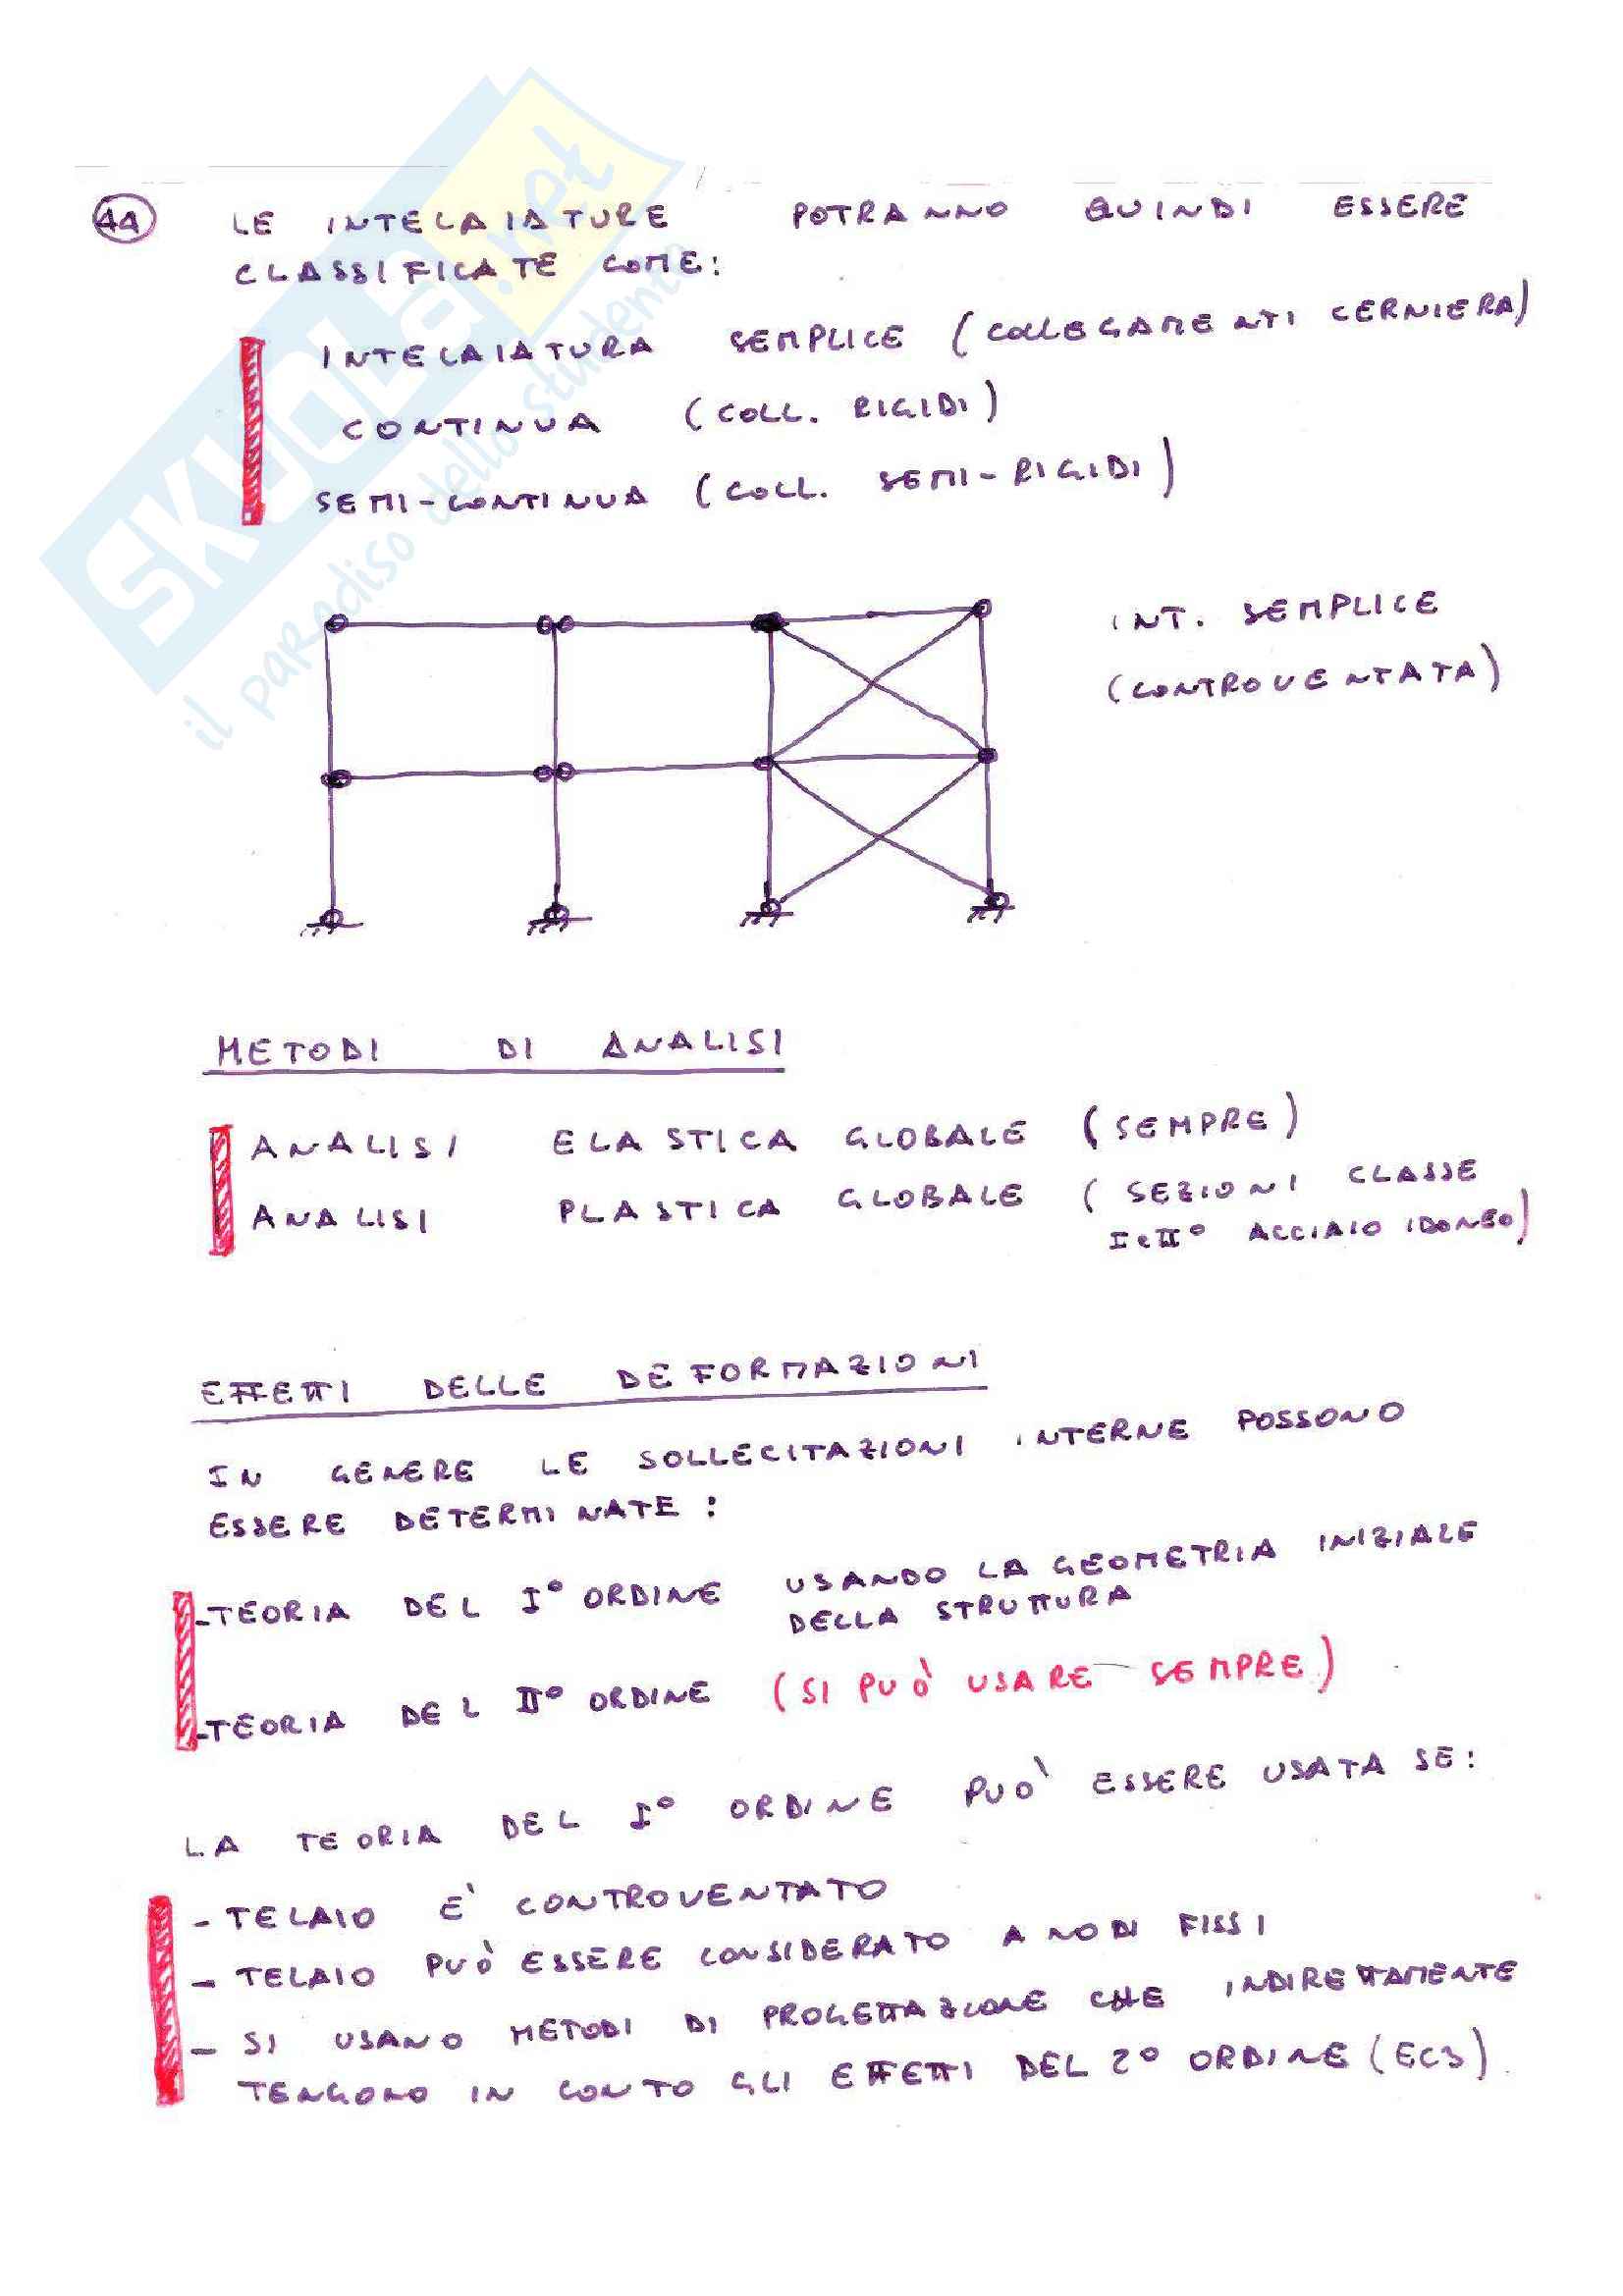 44 LE INTELAIATURE POTRANNO QUINDI ESSERE
CLASSIFICATE COME:
INTELAIATURA SEMPLICE (COLLEGAMENTI CERNIERA)
CONTINUA (COLL. RIGIDI)
SEMI-CONTINUA (COLL. SEMI-RIGIDI)
SKUOLA.net
il paradiso dello studente
INT. SEMPLICE
(CONTROVENTATA)
METODI DI ANALISI
ANALISI ELASTICA GLOBALE (SEMPRE)
ANALISI PLASTICA GLOBALE (SEZIONI CLASSE
I e II° ACCIAIO IDONEO)
EFFETTI DELLE DEFORMAZIONI
IN GENERE LE SOLLECITAZIONI INTERNE POSSONO
ESSERE DETERMINATE:
-TEORIA DEL I° ORDINE USANDO LA GEOMETRIA INIZIALE
DELLA STRUTTURA
-TEORIA DEL II° ORDINE (SI PUÒ USARE SEMPRE)
LA TEORIA DEL I° ORDINE PUO' ESSERE USATA SE:
- TELAIO E' CONTROVENTATO
- TELAIO PUÒ ESSERE CONSIDERATO A NODI FISSI
- SI USANO METODI DI PROGETTAZIONE CHE INDIRETTAMENTE
TENGONO IN CONTO GLI EFFETTI DEL 2° ORDINE (EC3)